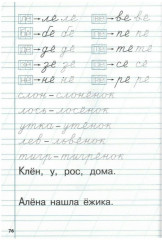 ле ле → ве ве
бе бе → пе пе
де де → те те
зе зе → се се
не не → ре ре
слон - слонёнок
лось - лосёнок
утка - утёнок
лев - львёнок
тигр - тигрёнок
Клён, у, рос, дома.
Алёна нашла ёжика.
76